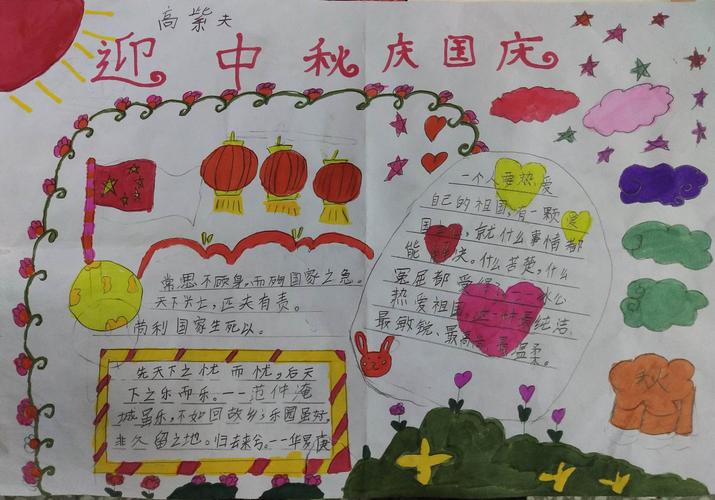 高紫夫
迎中秋庆国庆
常思不顾身,而殉国家之急。
天下兴士,匹夫有责。
苟利国家生死以。
先天下之忧而忧,后天
下之乐而乐。--范仲淹
城虽乐,不如回故乡;乐园虽好,
非久留之地。归去来兮。--华罗庚
一个人要热爱
自己的祖国,有一颗爱
国,就什么事情都
能决。什么苦楚,什么
冤屈都受得--冰心
热爱祖国,这一种最纯洁、
最敏锐、最高、最温柔。
秋